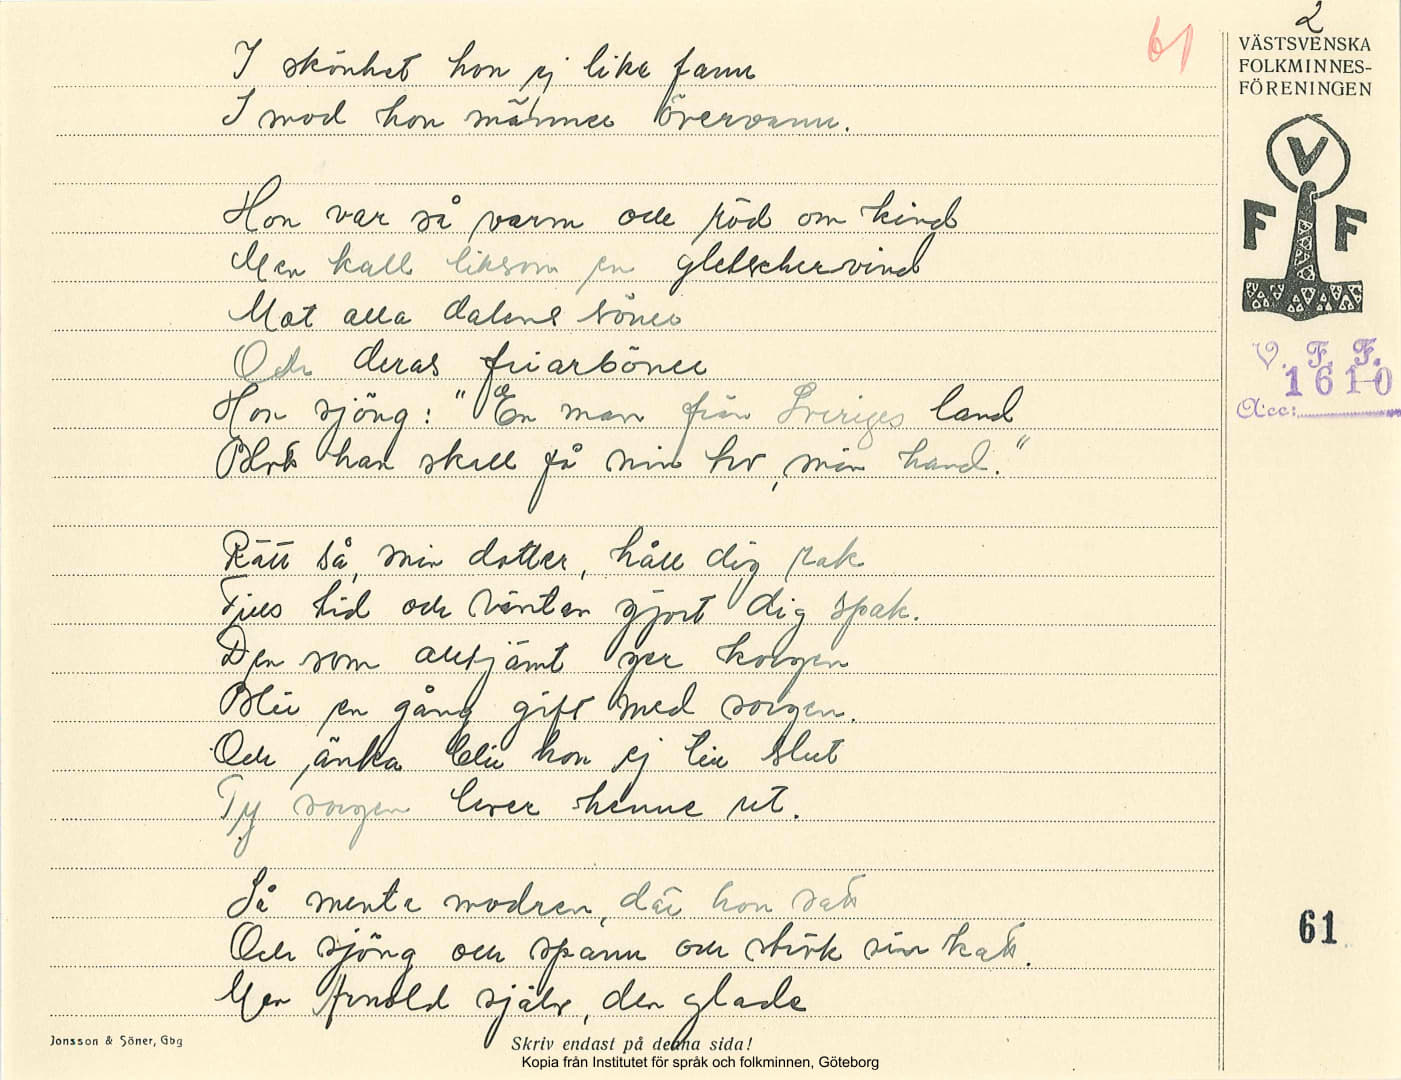 2
61
VÄSTSVENSKA
FOLKMINNES-
FÖRENINGEN
V
F F
V. F. F.
1610
Acc:
61
I skönhet hon ej like fann
I mod hon männer övervann.
Hon var så varm och röd om kind
Men kall liksom en gletschervind
Mot alla dalens söner
Och deras friarböner
Hon sjöng: "En man från Sveriges land
Blott han skall få min tro, min hand."
Rätt så, min dotter, håll dig rak
Tills tid och väntan gjort dig spak.
Den som alltjämt ger korgen
Blir en gång gift med sorgen.
Och änka blir hon ej till slut
Ty sorgen lever henne ut.
Så mente modren, där hon satt
Och sjöng och spann och strök sin katt.
Men Arnold själv, den glade
Jonsson & Söner, Gbg
Skriv endast på denna sida!
Kopia från Institutet för språk och folkminnen, Göteborg